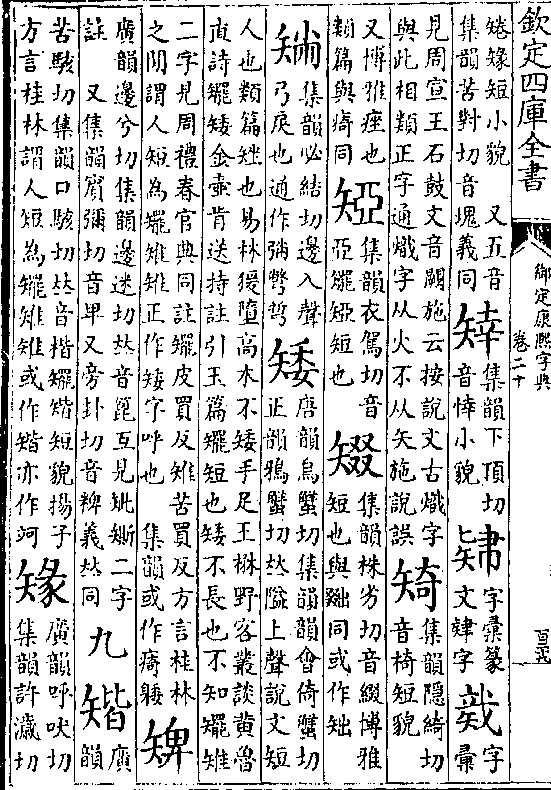 欽定四庫全書
御定康熙字典
卷二十
短小貌 又五音
集韻苦對切音塊義同
集韻下頂切
音悻小貌
字彙篆
文肄字
字
彙
見周宣王石鼓文音闕施云按說文古熾字
與此相類正字通熾字从火不从矢施說誤
集韻隱綺切
音椅短貌
又博雅痤也
類篇與㾨同
集韻衣駕切音
亞矲短也
集韻株劣切音綴博雅
短也與同或作
集韻必結切邊入聲
弓戾也通作彆
矮
唐韻烏蟹切集韻韻會倚蟹切
正韻鴉蟹切𠀤隘上聲說文短
人也類篇矬也易林猨墮高木不矮手足王楙野客叢談黃魯
直詩矲矮金壷肯送持註引玉篇矲短也矮不長也不知矲雉
二字見周禮春官典同註矲皮買反雉苦買反方言桂林
之閒謂人短為矲雉雉正作矮字呼也 集韻或作躷
廣韻邊兮切集韻邊迷切𠀤音豍互見二字
註 又集韻賔彌切音卑又旁卦切音粺義𠀤同
九
廣
韻
苦駭切集韻口駭切𠀤音楷矲短貌揚子
方言桂林謂人短為矲雉雉或作亦作
廣韻呼吠切
集韻許濊切